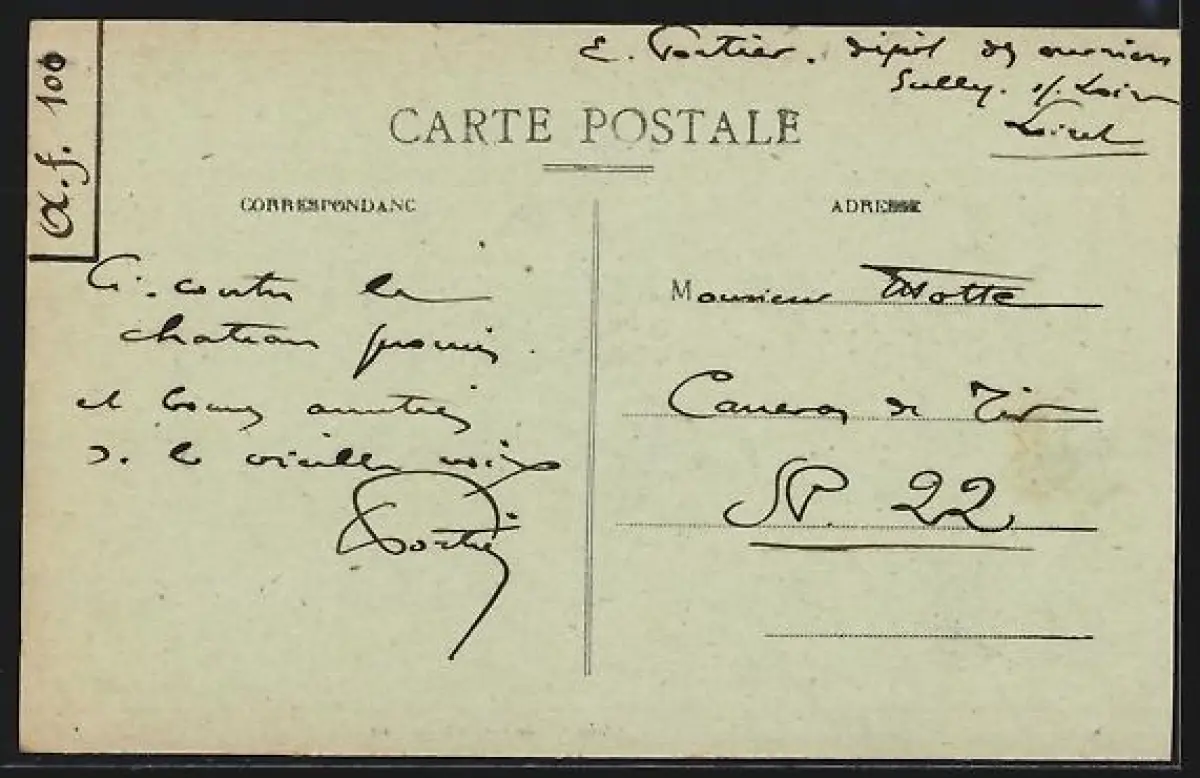 a.f. 100
E. Portier. dépôt des ouvriers
Sully. s/. Loire
Loiret
CARTE POSTALE
CORRESPONDANC
ADRESSE
Ci-contre le
chateau promis.
et bonnes amitiés
de la vieille
Portier
Monsieur Motte
Caneros de Tir
SP. 22